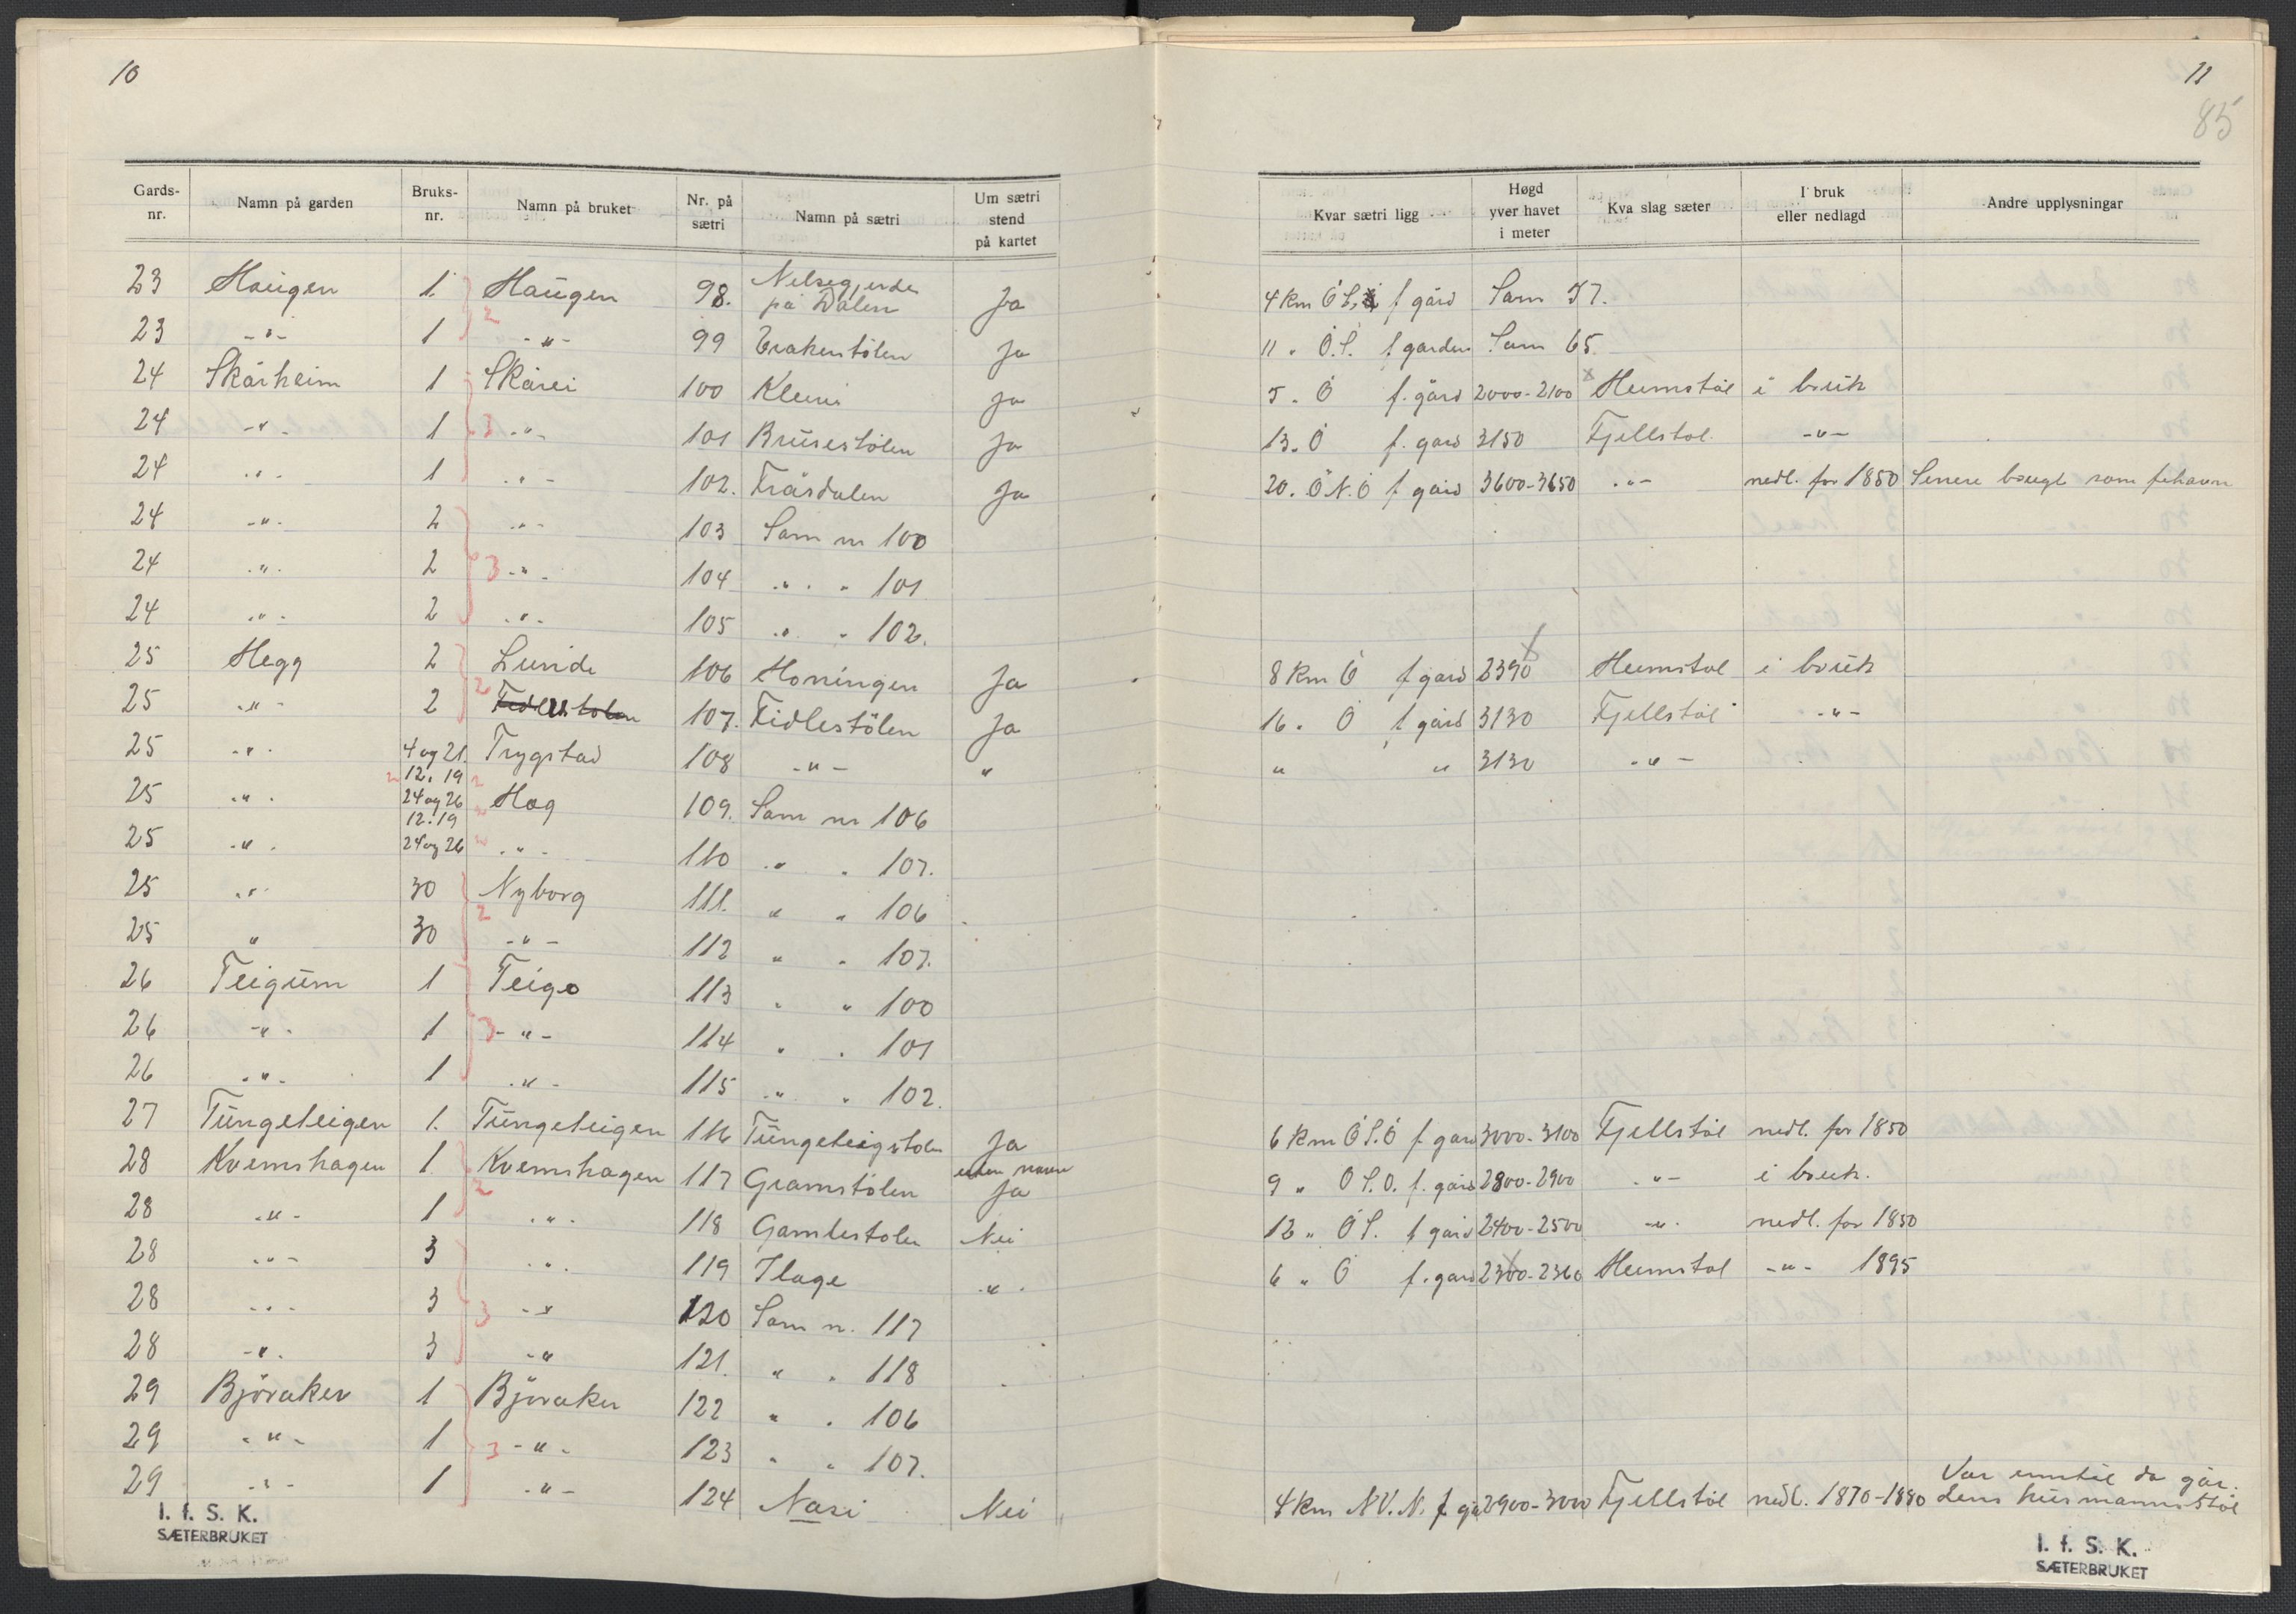 10
11
85
Gards-nr. Namn på garden Bruks-nr. Namn på bruket Nr. på sætri Namn på sætri Um sætri stend på kartet Kvar sætri ligg Høgd yver havet i meter Kva slag sæter I bruk eller nedlagd Andre upplysningar
23 Haugen 1. Haugen 98. på Dalen Ja 4 km f gård Sam 57.
23 -"- 1 -"- 99 Ja 11 " Ö.S. f garden Sam 65.
24 Skårheim 1 Skårei 100 Kleivi Ja 5 " Ö f. gård 2000-2100 Heimstöl i bruk
24 -"- 1 -"- 101 Brusestölen Ja 13 " Ö f. gard 3150 Fjellstöl -"-
24 -"- 1 -"- 102. Fråsdalen Ja 20 " Ö N.Ö f gård 3600-3650 -"- nedl. för 1850 Senere brugt som fehavn
24 -"- 2 -"- 103 Sam nr 100
24 -"- 2 -"- 104 " " 101
24 -"- 2 -"- 105 " " 102.
25 Hegg 2 Lunde 106 Honingen Ja 8 km Ö f gard 2390 Heimstöl i bruk
25 -"- 2 107. Fidlestölen Ja 16 " Ö f gård 3130 Fjellstöl -"-
25 -"- 4 og 21. Trygstad 108 -"- " " " 3130 -"-
25 -"- 12. 19 24 og 26 Hag 109. Sam nr 106
25 -"- 12. 19 24 og 26 -"- 110 " " 107.
25 -"- 30 Nyborg 111. " " 106
25 " 30 -"- 112 " " 107.
26 Teigum 1 Teigo 113 " " 100
26 -"- 1 -"- 114 " " 101
26 -"- 1 -"- 115 " " 102.
27 Tungeteigen 1. Tungeteigen 116 Tungeteigstölen Ja 6 km Ö S.Ö f gard 3000-3100 Fjellstöl nedl. för 1850
28 Kvemshagen 1. Kvemshagen 117 Gramstölen uten navn Ja 9 " Ö S.Ö. f. gård 2800-2900 -"- i bruk.
28 -"- 1 -"- 118 Gamlestölen Nei 12 " Ö S. f gård 2400-2500 -"- nedl. för 1850
28 -"- 3 -"- 119 Ilage -"- 6 " Ö f. gard 2300-2360 Heimstöl -"- 1895
28 -"- 3 -"- 120 Sam n. 117
28 -"- 3 -"- 121. " " 118
29 Björaker 1 Björaker 122 " " 106
29 -"- 1 -"- 123 " " 107.
29 -"- 1 -"- 124 Nasi Nei 4 km NV.N. f 2900-3000 Fjellstöl nedl. 1870-1880 Var inntil da går-
dens husmannsstöl
I. f. S. K.
SÆTERBRUKET
I. f. S. K.
SÆTERBRUKET